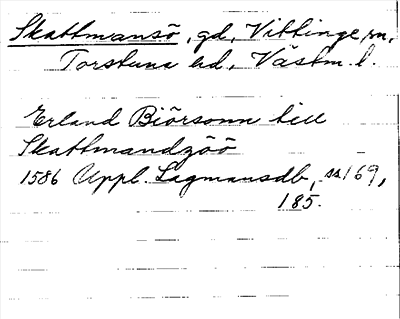 Skattmansö, gd, Vittinge sn,
Torstuna hd, Västm. l.
Erland Biörsonn till
Skathmandzöö
1586 Uppl. Lagmansdb, ss 169,
185.